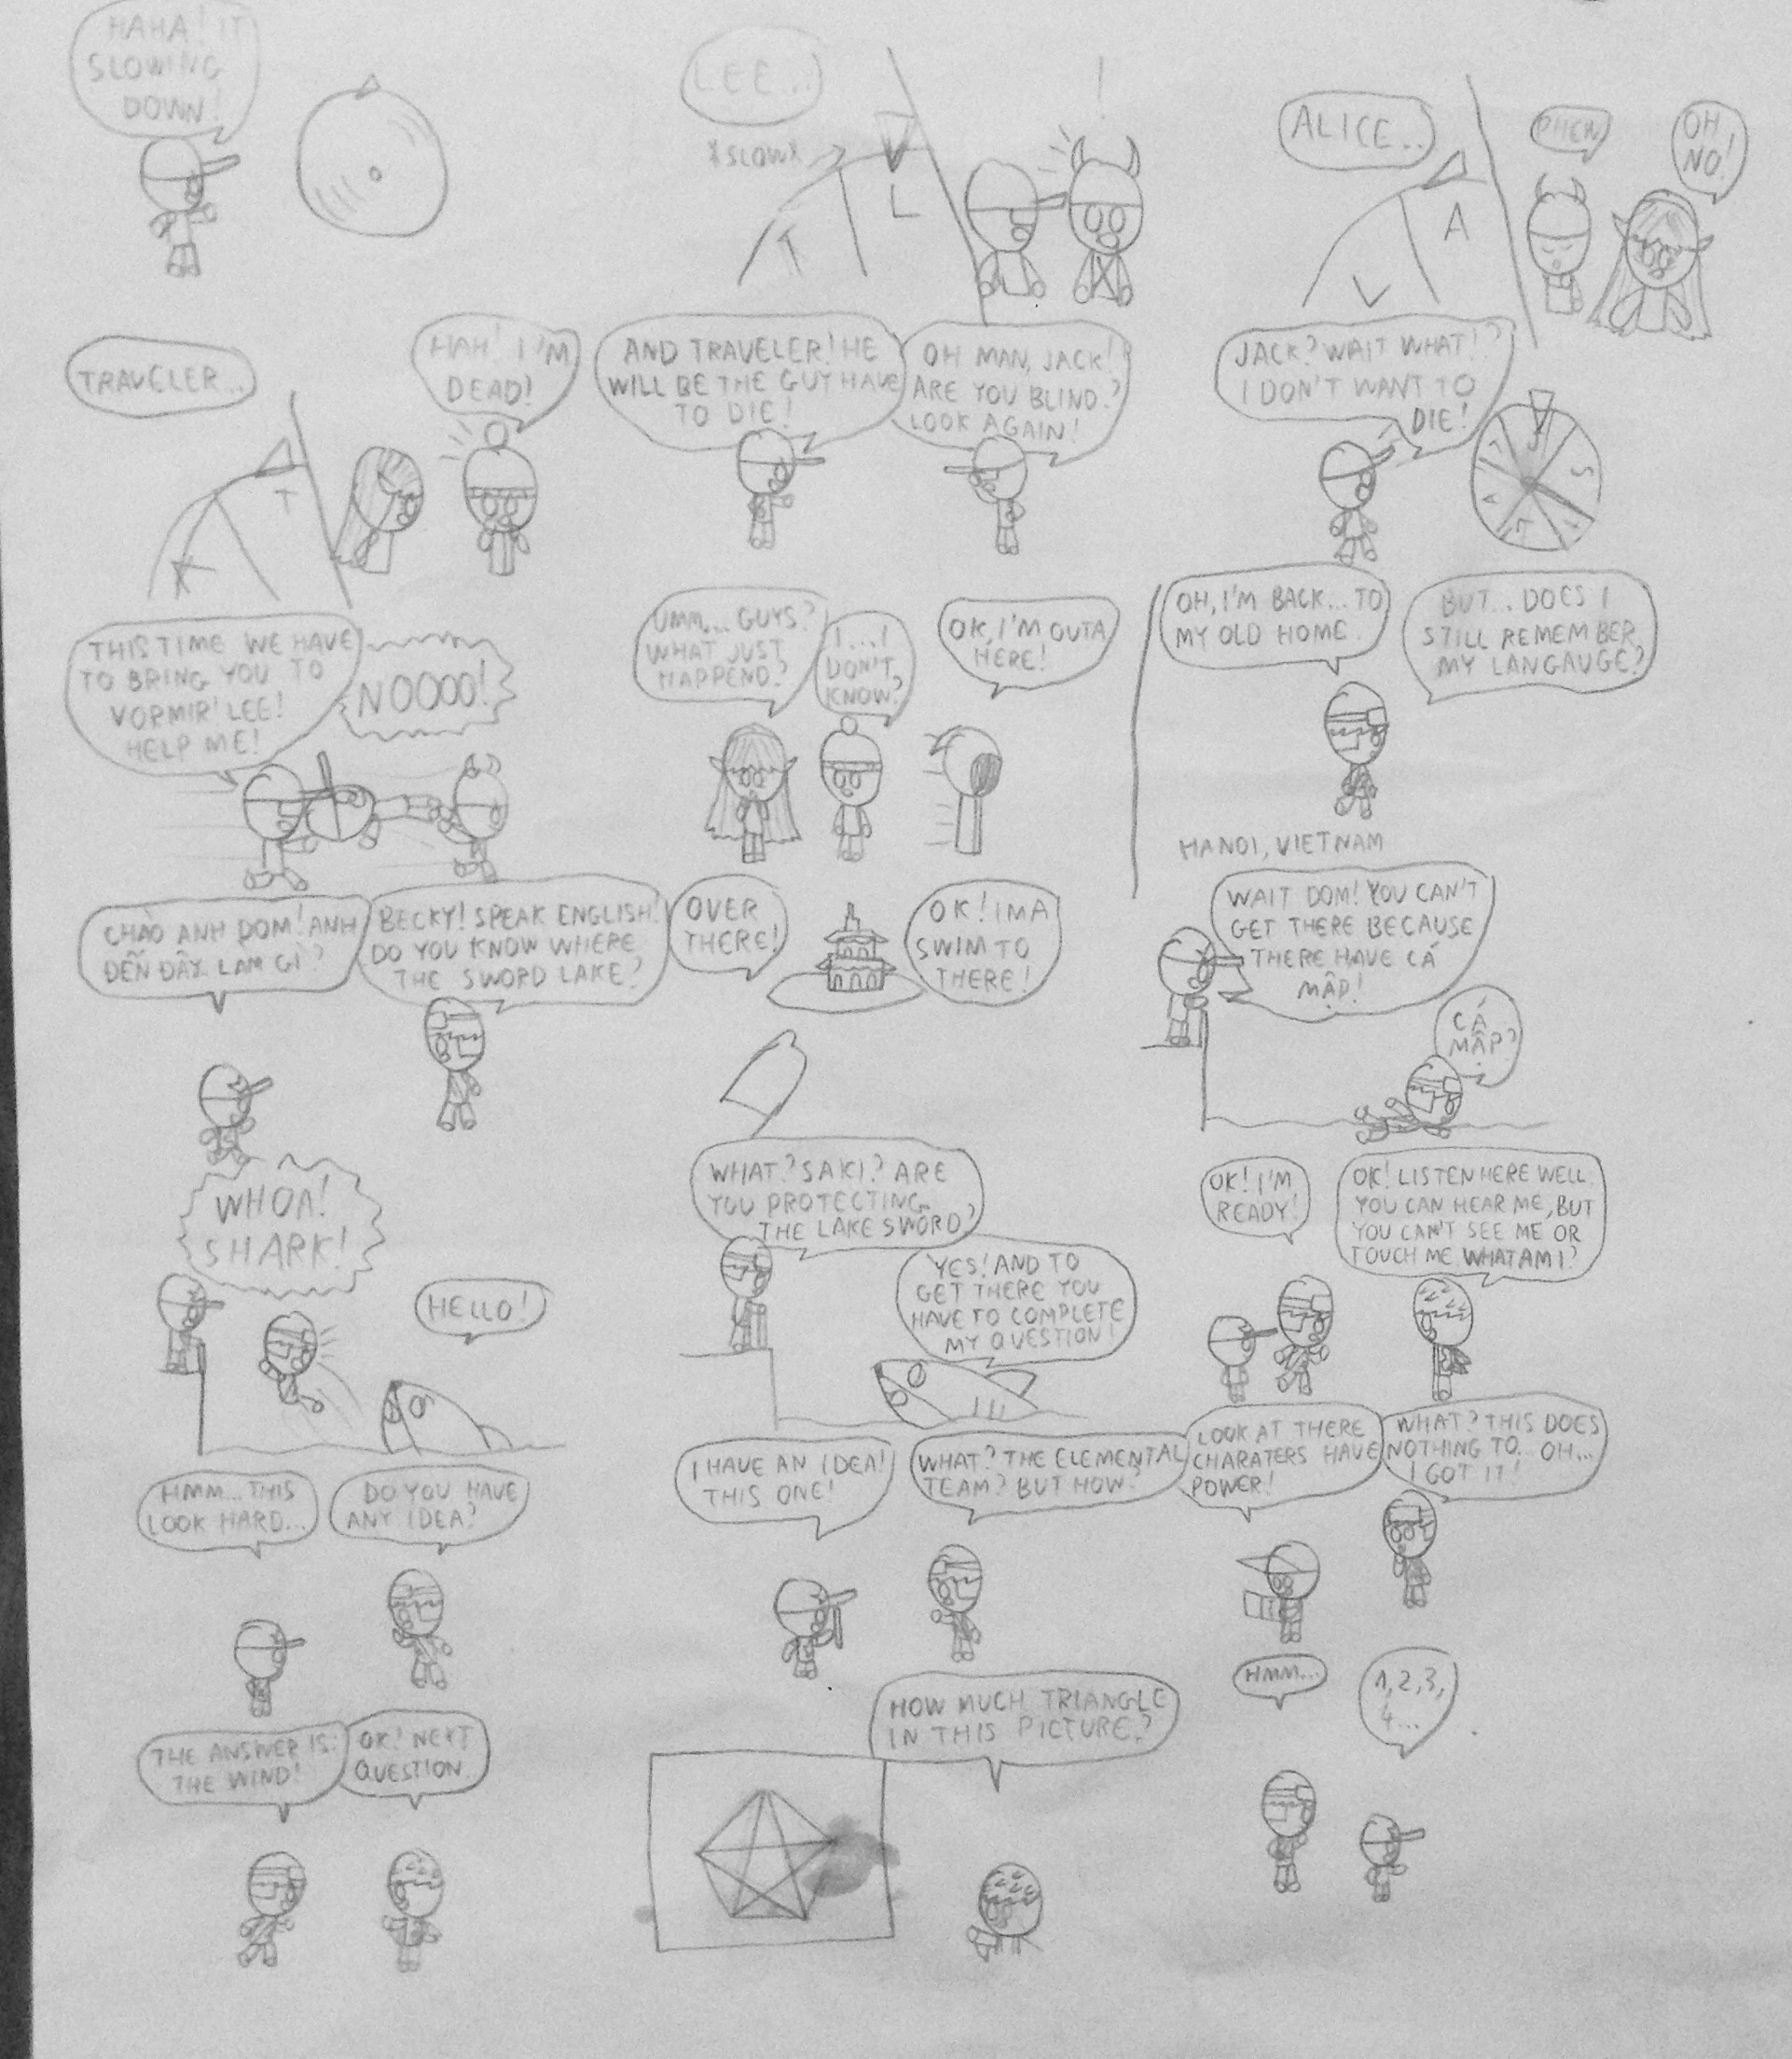 HAHA! IT
SLOWING
DOWN!
LEE...
*SLOW*
T
L
!
ALICE..
L
A
PHEW
OH
NO!
TRAVELER..
K
T
HAH! I'M
DEAD!
AND TRAVELER! HE
WILL BE THE GUY HAVE
TO DIE!
OH MAN, JACK!
ARE YOU BLIND?
LOOK AGAIN!
JACK? WAIT WHAT!?
I DON'T WANT TO
DIE!
J
S
THIS TIME WE HAVE
TO BRING YOU TO
VORMIR! LEE!
HELP ME!
NOOOO!
UMM... GUYS?
WHAT JUST
HAPPEND?
I...I
DON'T
KNOW?
OK, I'M OUTA
HERE!
OH, I'M BACK... TO
MY OLD HOME.
BUT... DOES I
STILL REMEMBER
MY LANGAUGE?
HANOI, VIETNAM
CHÀO ANH DOM! ANH
ĐẾN ĐÂY LÀM GÌ?
BECKY! SPEAK ENGLISH!
DO YOU KNOW WHERE
THE SWORD LAKE?
OVER
THERE!
OK! IMA
SWIM TO
THERE!
WAIT DOM! YOU CAN'T
GET THERE BECAUSE
THERE HAVE CÁ
MẬP!
CÁ
MẬP?
WHOA!
SHARK!
HELLO!
WHAT? SAKI? ARE
YOU PROTECTING
THE LAKE SWORD?
YES! AND TO
GET THERE YOU
HAVE TO COMPLETE
MY QUESTION!
OK! I'M
READY!
OK! LISTEN HERE WELL
YOU CAN HEAR ME, BUT
YOU CAN'T SEE ME OR
TOUCH ME. WHAT AM I?
HMM... THIS
LOOK HARD...
DO YOU HAVE
ANY IDEA?
I HAVE AN IDEA!
THIS ONE!
WHAT? THE ELEMENTAL
TEAM? BUT HOW?
LOOK AT THERE
CHARATERS HAVE
POWER!
WHAT? THIS DOES
NOTHING TO... OH...
I GOT IT!
THE ANSWER IS:
THE WIND!
OK! NEXT
QUESTION.
HOW MUCH TRIANGLE
IN THIS PICTURE?
HMM...
1,2,3,
4...